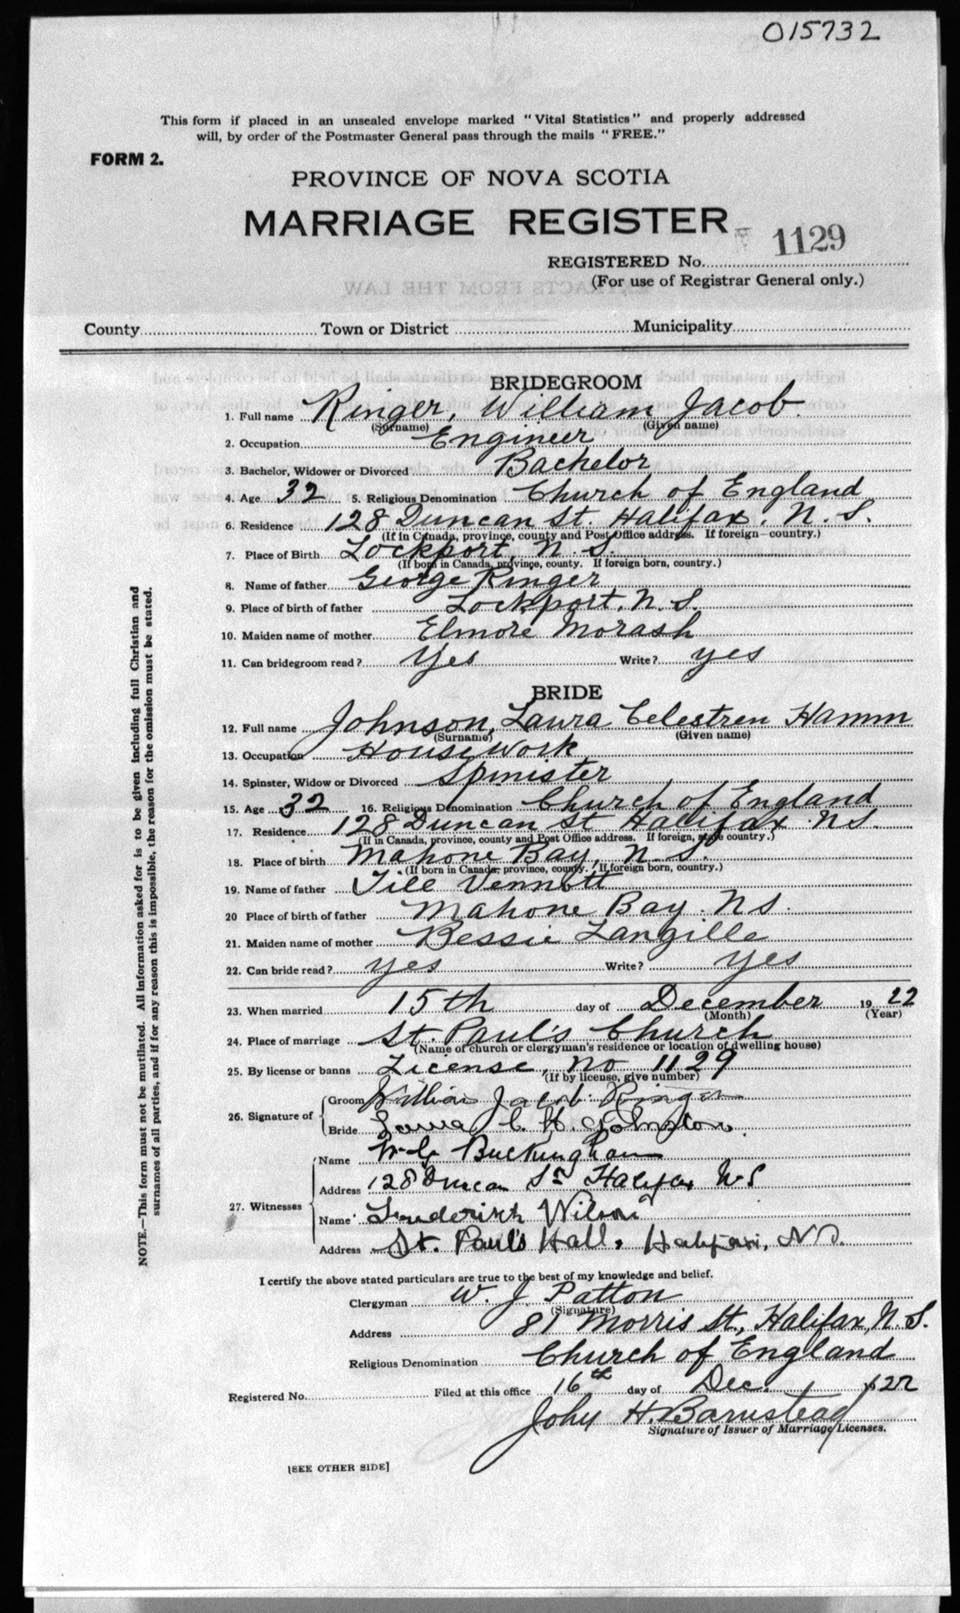 015732
This form if placed in an unsealed envelope marked "Vital Statistics" and properly addressed
will, by order of the Postmaster General pass through the mails "FREE."
FORM 2.
PROVINCE OF NOVA SCOTIA
MARRIAGE REGISTER
REGISTERED No. 1129
(For use of Registrar General only.)
County Town or District Municipality
BRIDEGROOM
1. Full name Ringer, William Jacob
(Surname) (Given name)
2. Occupation Engineer
3. Bachelor, Widower or Divorced Bachelor
4. Age 32 5. Religious Denomination Church of England
6. Residence 128 Duncan St. Halifax, N. S.
(If in Canada, province, county and Post Office address. If foreign—country.)
7. Place of Birth Lockport, N. S.
(If born in Canada, province, county. If foreign born, country.)
8. Name of father George Ringer
9. Place of birth of father Lockport, N. S.
10. Maiden name of mother Elmore Morash
11. Can bridegroom read? Yes Write? yes
BRIDE
12. Full name Johnson, Laura Celestren Hamm
(Surname) (Given name)
13. Occupation Housework
14. Spinster, Widow or Divorced Spinister
15. Age 32 16. Religious Denomination Church of England
17. Residence 128 Duncan St Halifax NS.
(If in Canada, province, county and Post Office address. If foreign, state country.)
18. Place of birth Mahone Bay, N. S.
(If born in Canada, province, county. If foreign born, country.)
19. Name of father Vennott
20 Place of birth of father Mahone Bay. NS.
21. Maiden name of mother Bessie Langille
22. Can bride read? yes Write? yes
23. When married 15th day of December 1922
(Month) (Year)
24. Place of marriage St. Paul's Church
(Name of church or clergyman's residence or location of dwelling house)
25. By license or banns License, No 1129
(If by license, give number)
26. Signature of Groom William Jacob Ringer
Bride Laura C. H. Johnston.
27. Witnesses
Name W G Buckingham
Address 128 Duncan St Halifax N.S
Name Wilson
Address St. Paul's Hall, Halifax, N.S.
I certify the above stated particulars are true to the best of my knowledge and belief.
Clergyman W. J. Patton
(Signature)
Address 81 Morris St., Halifax, N. S.
Religious Denomination Church of England
Registered No. Filed at this office 16th day of Dec. 1922
John H. Barnstead
Signature of Issuer of Marriage Licenses.
[SEE OTHER SIDE]
NOTE.—This form must not be mutilated. All information asked for is to be given including full Christian and
surnames of all parties, and if for any reason this is impossible, the reason for the omission must be stated.